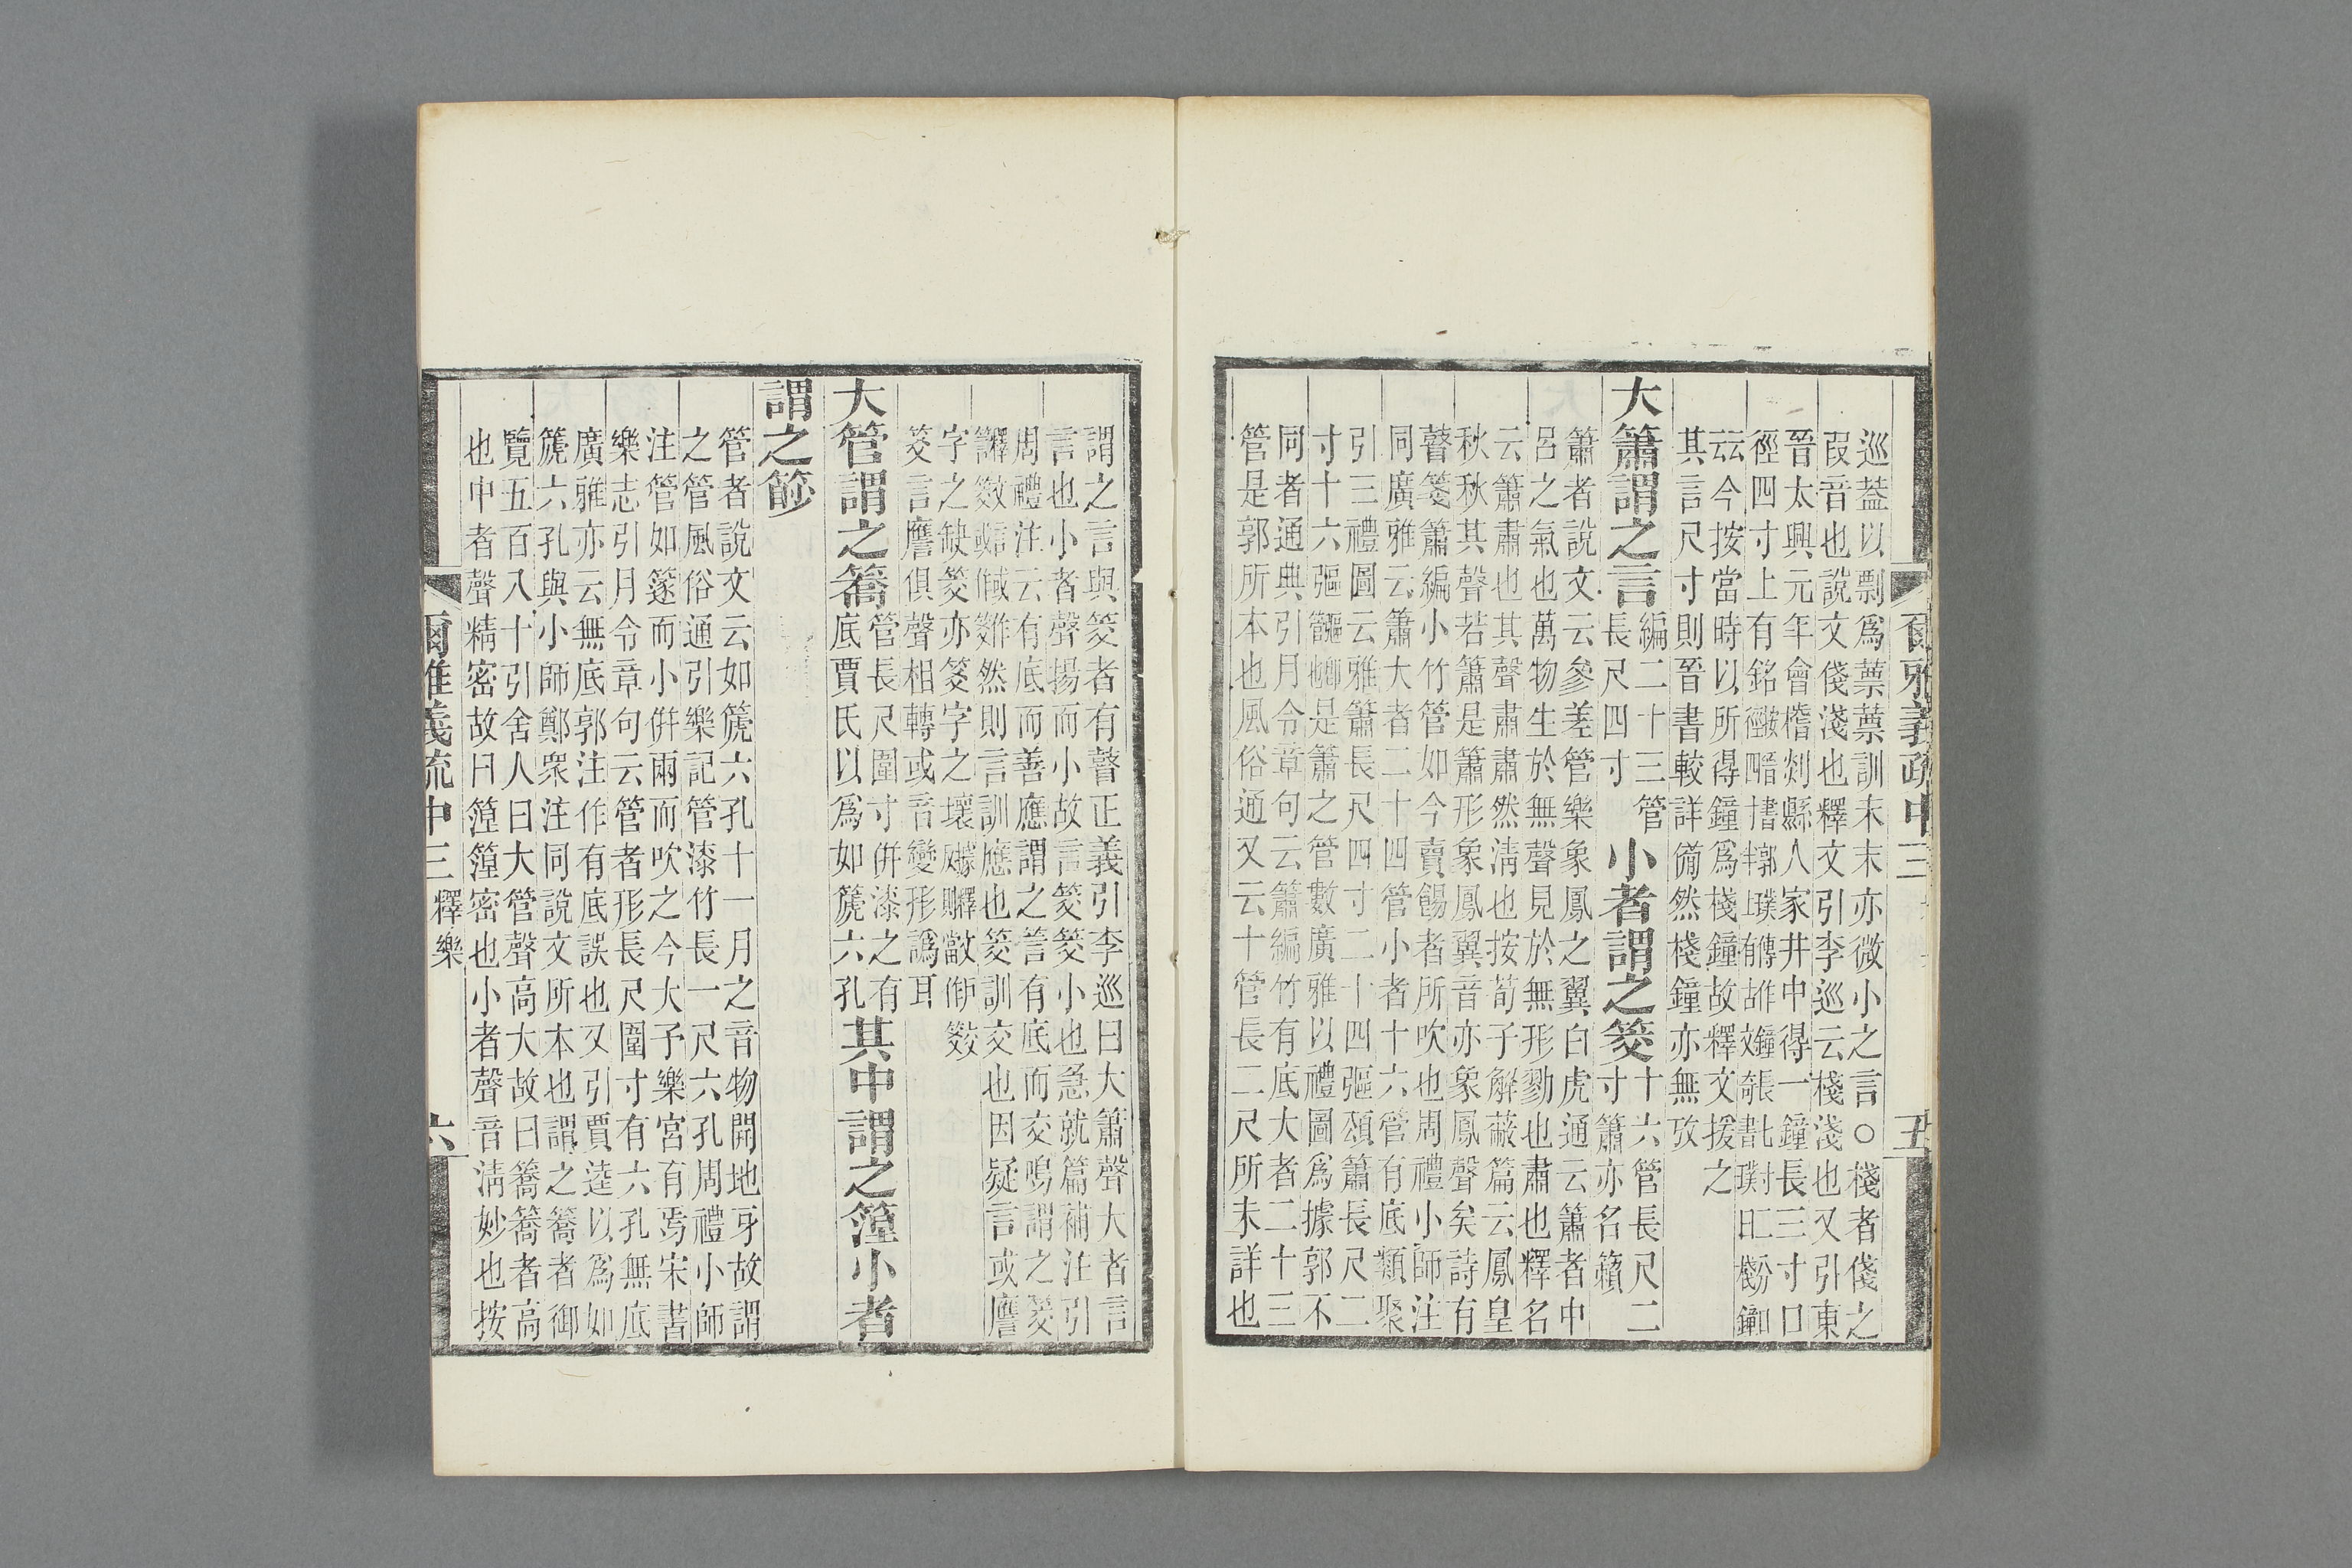 爾雅義疏中三
五
巡葢以剽爲蔈蔈訓末末亦微小之言○棧者俴之
叚音也說文俴淺也釋文引李巡云棧淺也又引東
晉太興元年會稽剡縣人家井中得一鐘長三寸口
徑四寸上有銘
云今按當時以所得鐘爲棧鐘故釋文援之
其言尺寸則晉書較詳僃然棧鐘亦無攷
大簫謂之言編二十三管長尺四寸小者謂之筊十六管長尺二寸簫亦名籟
簫者說文云參差管樂象鳳之翼白虎通云簫者中
呂之氣也萬物生於無聲見於無形勠也肅也釋名
云簫肅也其聲肅肅然淸也按荀子解蔽篇云鳳皇
秋秋其聲若簫是簫形象鳳翼音亦象鳳聲矣詩有
瞽箋簫編小竹管如今賣餳者所吹也周禮小師注
同廣雅云簫大者二十四管小者十六管有底類聚
引三禮圖云雅簫長尺四寸二十四彄頌簫長尺二
寸十六彄是簫之管數廣雅以禮圖爲據郭不
同者通典引月令章句云簫編竹有底大者二十三
管是郭所本也風俗通又云十管長二尺所未詳也
謂之言與筊者有瞽正義引李巡曰大簫聲大者言
言也小者聲揚而小故言筊筊小也急就篇補注引
周禮注云有底而善應謂之言有底而交鳴謂之筊
然則言訓應也筊訓交也因疑言或譍
字之缺筊亦筊字之壞
筊言譍俱聲相轉或音變形譌耳
大管謂之簥管長尺圍寸併漆之有底賈氏以爲如篪六孔其中謂之篞小者
謂之篎
管者說文云如篪六孔十一月之音物開地牙故謂
之管風俗通引樂記管漆竹長一尺六孔周禮小師
注管如篴而小併兩而吹之今大予樂宮有焉宋書
樂志引月令章句云管者形長尺圍寸有六孔無底
廣雅亦云無底郭注作有底誤也又引賈逵以爲如
篪六孔與小師鄭眾注同說文所本也謂之簥者御
覽五百八十引舍人曰大管聲高大故曰簥簥者高
也中者聲精密故曰篞篞密也小者聲音淸妙也按
爾雅義疏中三 釋樂
六